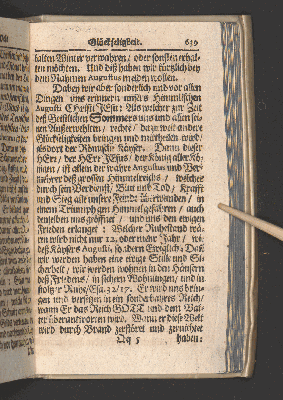 Glückseligkeit. 639
kalten Winter verwahren / oder sonsten erhal-
ten möchten. Und diß haben wir kürtzlich bey
dem Nahmen Augustus melden wollen.
Dabey wir aber sonderlich und vor allen
Dingen uns erinnern unsers Himmlischen
Augusti Christi JEsu: Als welcher zur Zeit
deß Geistlichen Sommers uns und allen sei-
nen Außerwehlten / rechte / dazu weit andere
Glückseligkeiten bringen und mittheilen wird /
als dort der Römische Käyser. Dann dieser
HErr / der HErr JEsus / der König aller Kö-
nigen / ist allein der wahre Augustus und Ver-
mehrer deß grossen Himmelreichs / welcher
durch sein Verdienst / Blut und Tod / Krafft
und Sieg alle unsere Feinde überwunden / in
einem Triumph gen Himmel gefahren / auch
denselben uns geöffnet / und uns den ewigen
Frieden erlanget: Welcher Ruhestand wä-
ren wird nicht nur 12. oder mehr Jahr / wie
deß Käysers Augusti, sondern Ewiglich: Daß
wir werden haben eine ewige Stille und Si-
cherheit / wir werden wohnen in den Häusern
deß Friedens / in sichern Wohnungen / und in
stoltzer Ruhe / Esa. 32/17. Er wird uns brin-
gen und versetzen in ein sonderbahres Reich /
wann Er das Reich GOTT und dem Vat-
ter überantworten wird. Wann er diese Welt
wird durch Brand zerstöret und zernichtet
Qq 5 haben: